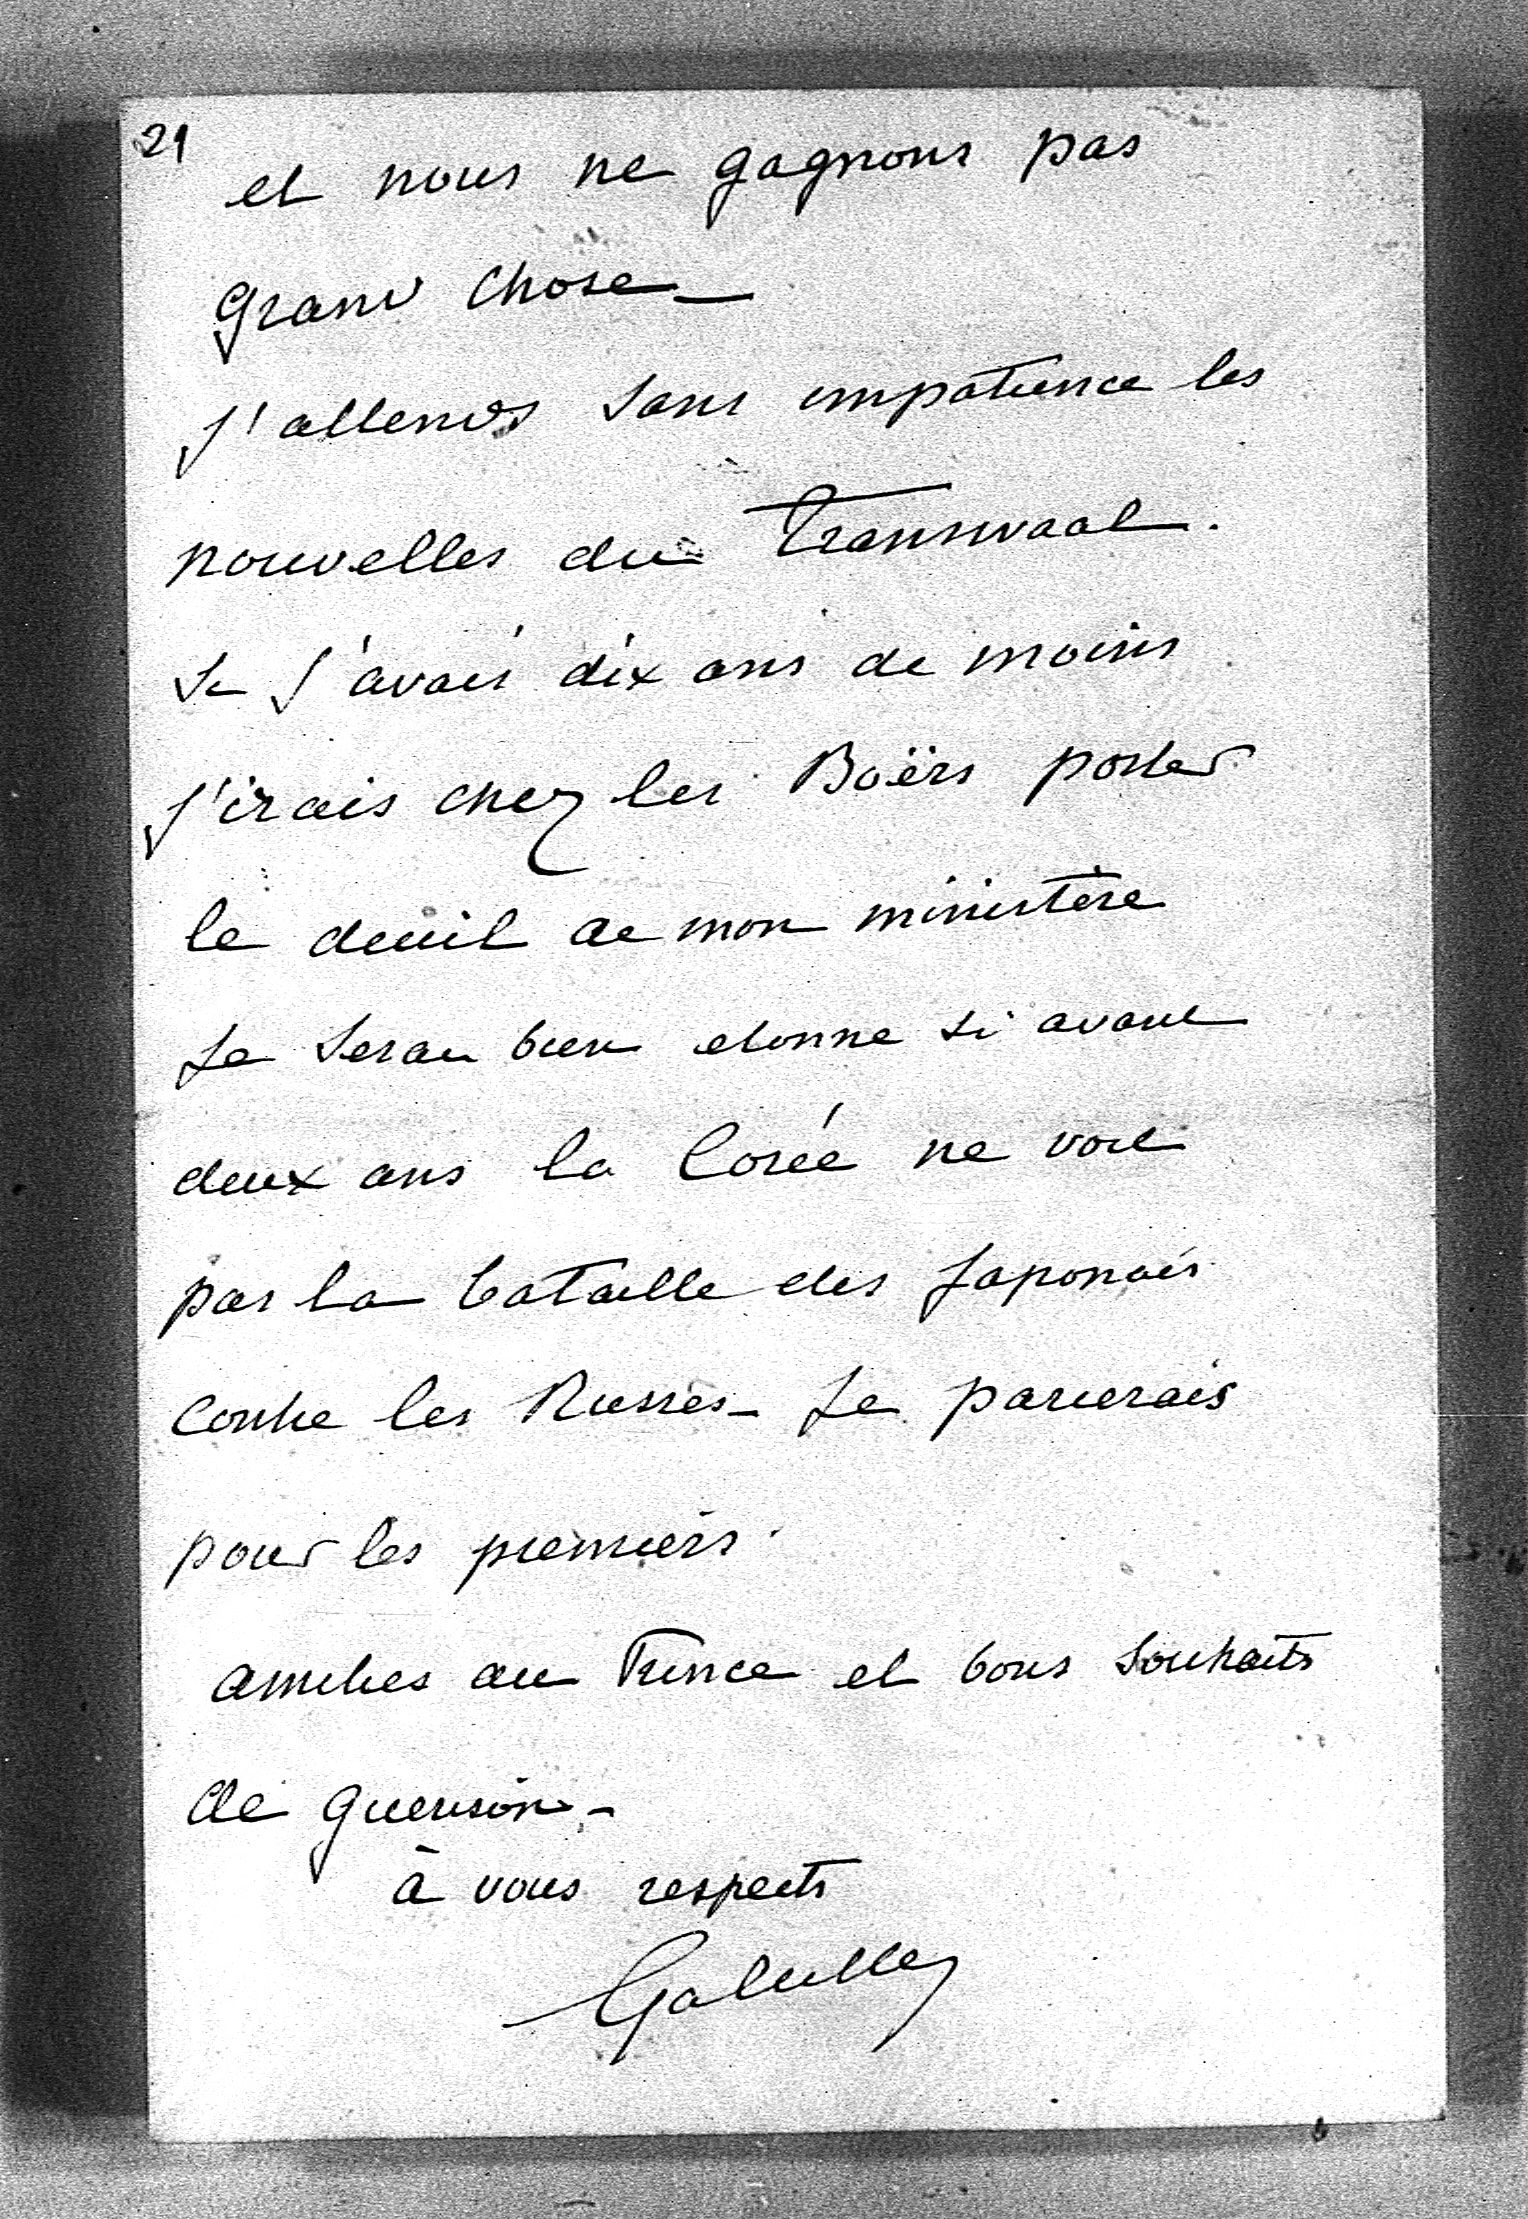 21
et nous ne gagnons pas
grand chose_
J'attends sans impatience les
nouvelles du Transwaal.
si j'avais dix ans de moins
j'irais chez les Boërs porter
le deuil de mon ministère
Je serai bien etonne si avant
deux ans la Corée ne voit
pas la bataille des Japonais
contre les Russes_ Je parierais
pour les premiers.
amities au Prince et bons souhaits
de guerison_
à vous respects
Galliffet